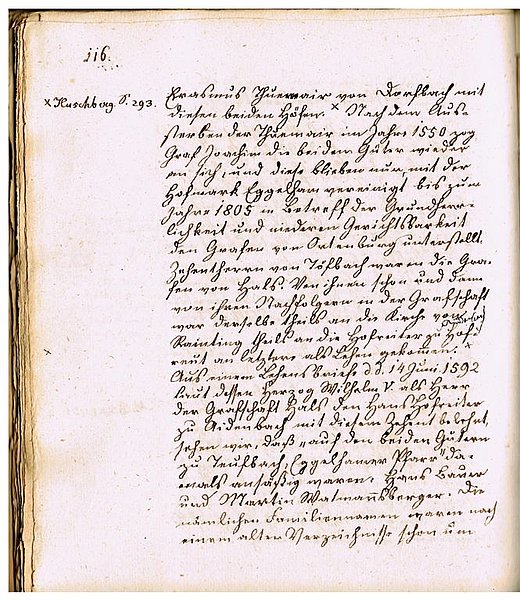 116.
× Huschberg S. 293.
Erasmus Thuemair von Dorfbach mit
diesen beiden Höfen. × Nach dem Aus-
sterben der Thuemair im Jahre 1550 zog
Graf Joachim die beiden Güter wieder
an sich, und diese blieben nun mit der
Hofmark Eggelham vereinigt bis zum
Jahre 1805 in Betreff der Grundherr-
lichkeit und niederen Gerichtsbarkeit
den Grafen von Ortenburg unterstellt.
Zehentherrn von Töfbach waren die Gra-
fen von Hals. Von ihnen schon und dann
von ihren Nachfolgern in der Grafschaft
war derselbe theils an die Kirche von
Rainting theils an die Hofreiter zu Hof-
reut an letztere als Lehen gekommen. ×
Aus einem Lehensbriefe d.d. 14 Juni 1592
laut dessen Herzog Wilhelm V. als Herr
der Grafschaft Hals den Hans Hofreiter
zu Aidenbach mit diesem Zehent belehnt,
sehen wir, daß "auf den beiden Gütern
zu Teufbach, Eggelhamer Pfarr" da-
mals ansäßig waren: Hans Bauer
und Martin Watmannsberger. Die
nämlichen Familiennamen waren nach
einem alten Verzeichnisse schon um